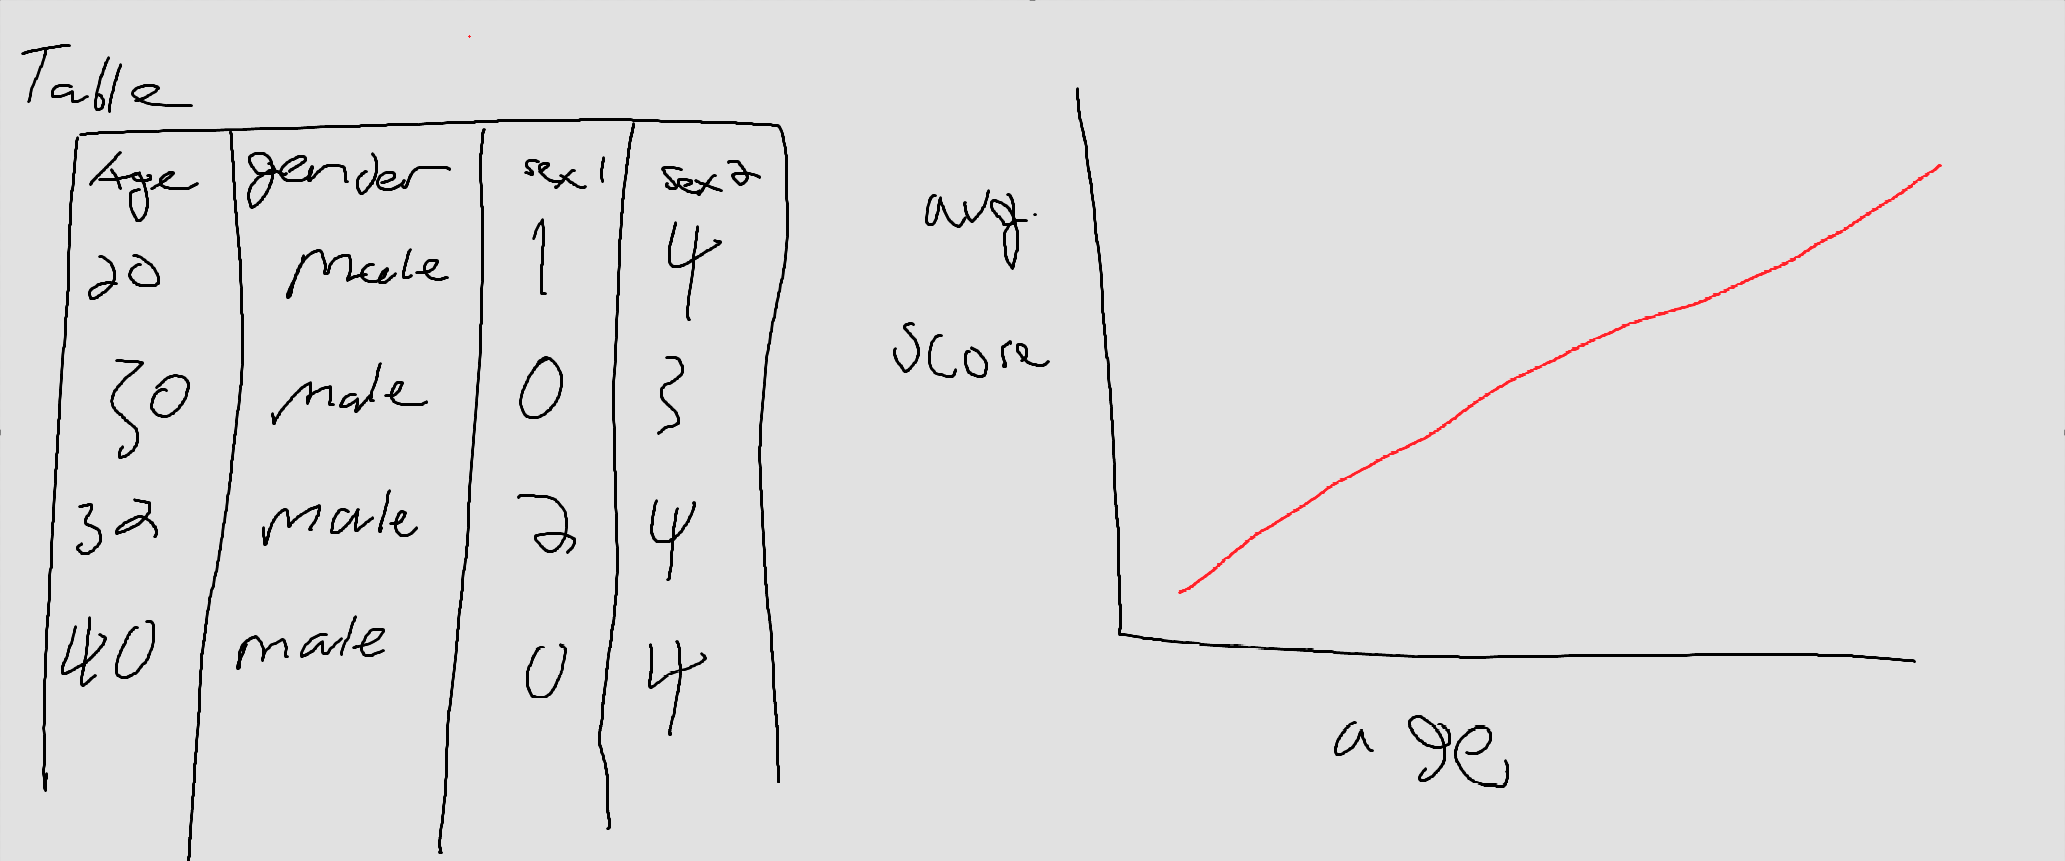 Table
Age gender sex1 sex2
20 male 1 4
30 male 0 3
32 male 2 4
40 male 0 4
avg.
score
age